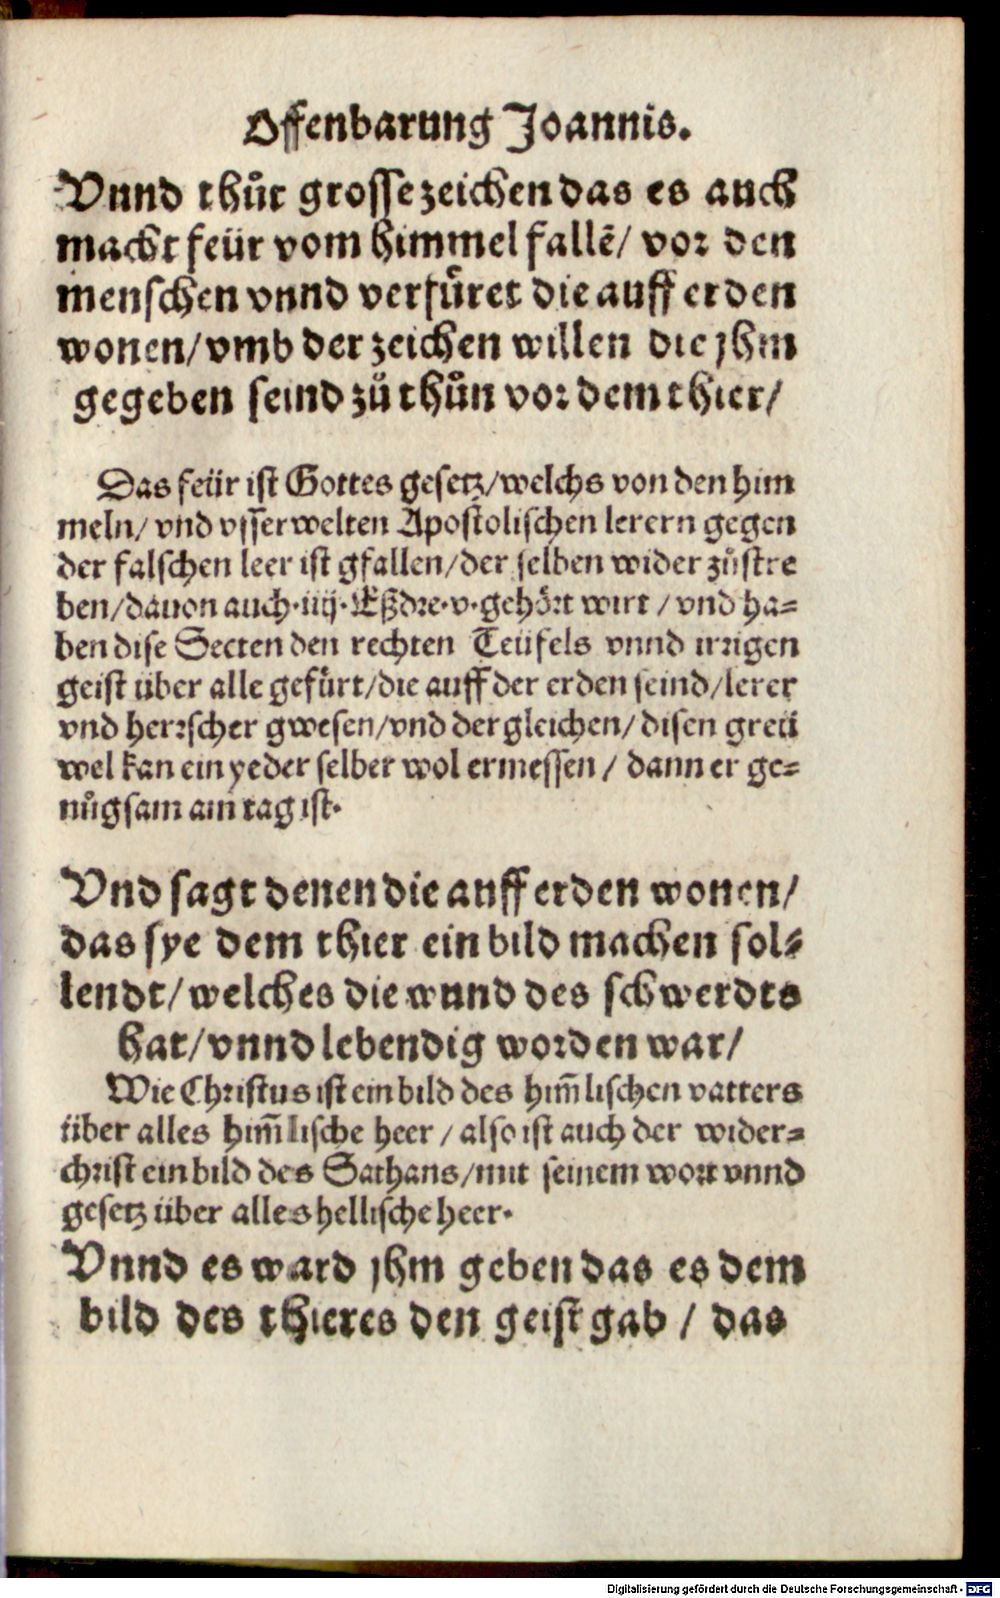 Offenbarung Joannis.
Vnnd thůt grosse zeichen das es auch
macht feür vom himmel fallẽ/ vor den
menschen vnnd verfůret die auff erden
wonen/ vmb der zeichen willen die jhm
gegeben seind zů thůn vor dem thier/
Das feür ist Gottes gesetz/ welchs von den him
meln/ vnd vsserwelten Apostolischen lerern gegen
der falschen leer ist gfallen/ der selben wider zůstre
ben/ dauon auch ·iiij· Eßdre·v· gehört wirt / vnd ha=
ben dise Secten den rechten Teüfels vnnd irrigen
geist über alle gefůrt/ die auff der erden seind/ lerer
vnd herrscher gwesen/ vnd der gleichen/ disen greü
wel kan ein yeder selber wol ermessen / dann er ge=
nůgsam am tag ist·
Vnd sagt denen die auff erden wonen/
das sye dem thier ein bild machen sol=
lendt/ welches die wund des schwerdts
hat/ vnnd lebendig worden war/
Wie Christus ist ein bild des him̃lischen vatters
über alles him̃lische heer / also ist auch der wider=
christ ein bild des Sathans/ mit seinem wort vnnd
gesetz über alles hellische heer·
Vnnd es ward jhm geben das es dem
bild des thieres den geist gab / das
Digitalisierung gefördert durch die Deutsche Forschungsgemeinschaft - DFG